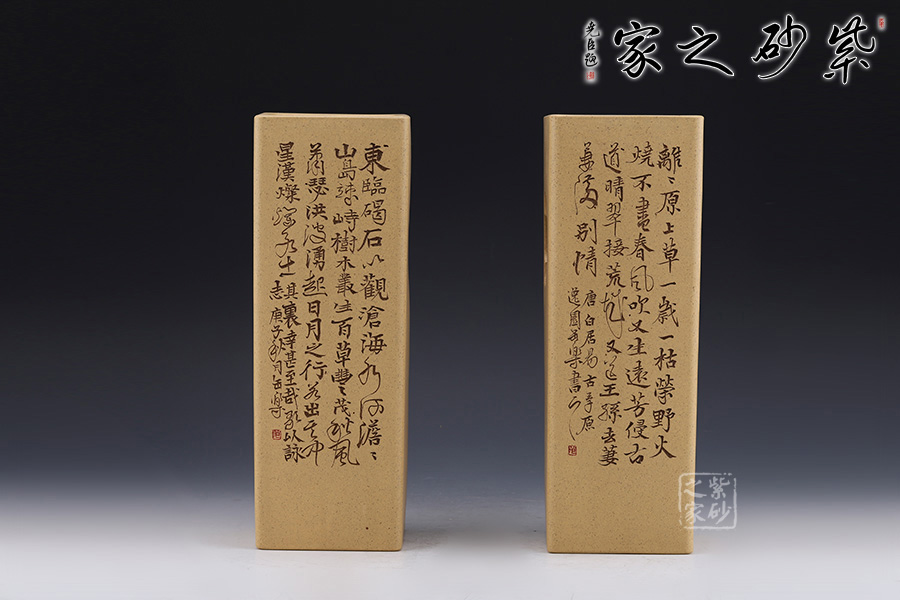 紫砂之家
東臨碣石以觀滄海水何澹〻
山島竦峙樹木叢生百草豐〻茂秋風
蕭瑟洪波湧起日月之行若出其中
星漢燦爛若出其裏幸甚至哉歌以詠
志庚子秋月
離〻原上草一歲一枯榮野火
燒不盡春風吹又生遠芳侵古
道晴翠接荒城又送王孫去萋
萋滿別情
唐白居易古草原
樂書
紫砂
之家